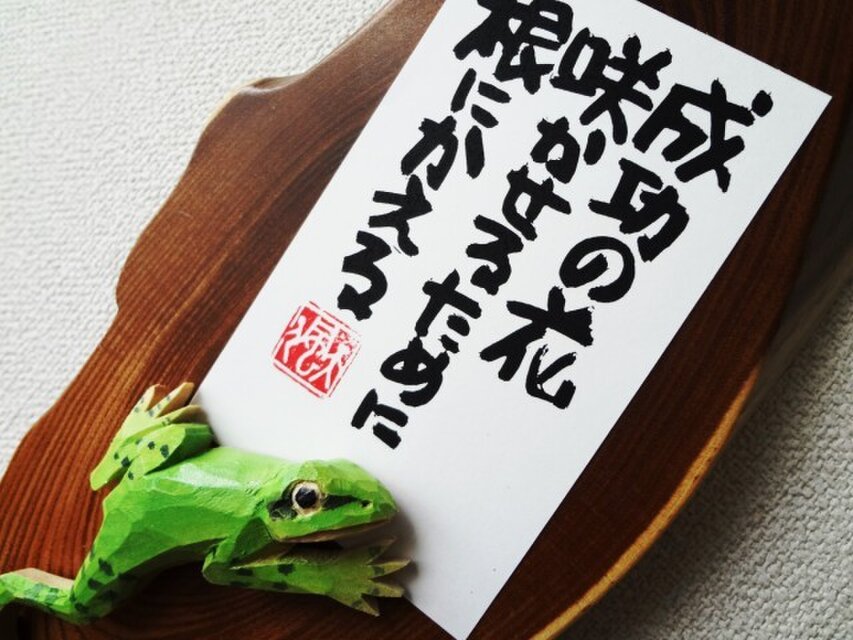 成功の花
咲かせるために
根にかえる